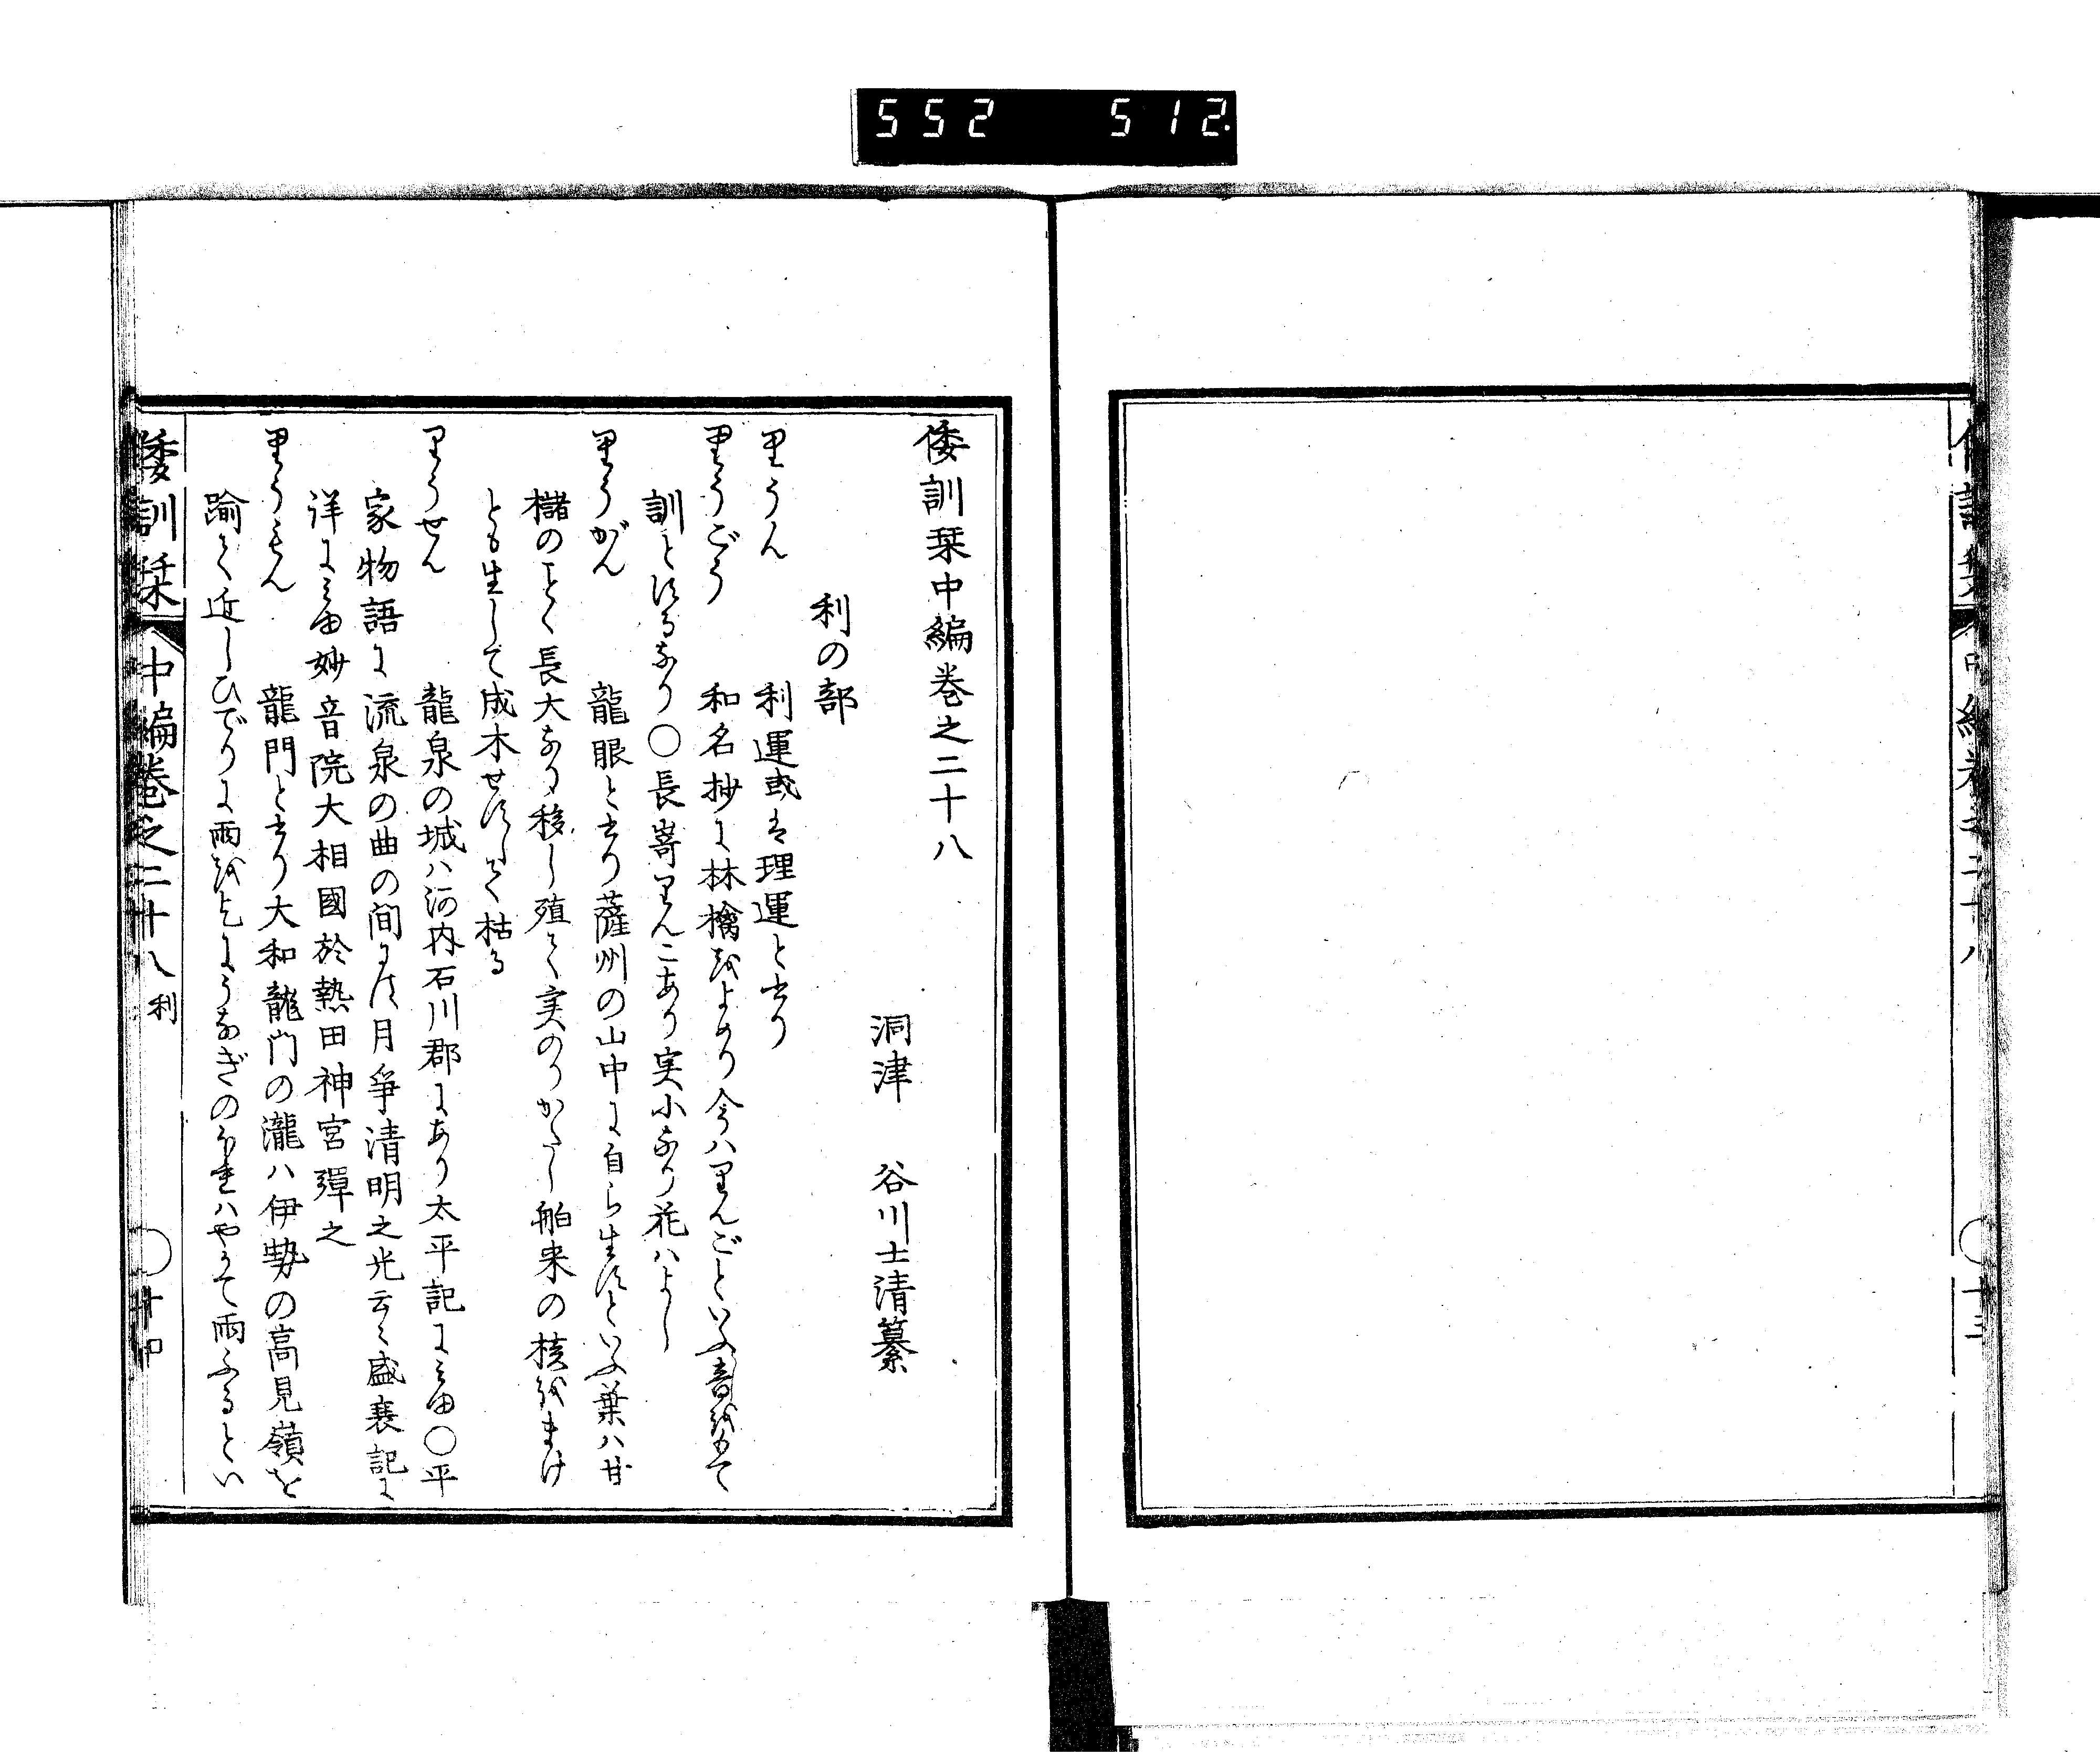 552 512
倭訓栞中編巻之二十八
洞津 谷川士清纂
利の部
りうん 利運或は理運と書り
りうごう 和名抄に林檎をよめり今ハりんごといふ音をもて
訓とせるなり〇長嵜りんこあり実小なり花ハよし
りうがん 龍眼と書り薩州の山中に自ら生すといふ葉ハ甘
櫧のことく長大なり移し殖て実のりかたし舶来の核をまけ
とも生して成木せすして枯る
りうせん 龍泉の城ハ河内石川郡にあり太平記に見ゆ〇平
家物語に流泉の曲の间には月爭清明之光云々盛衰記に
洋に見ゆ妙音院大相國於熱田神宮彈之
りうもん 龍門と書り大和龍门の瀧ハ伊勢の高見嶺を
踰て近しひでりに雨を乞にうなぎの ハやかて雨ふるとい
倭訓栞 中編巻之二十八 利 〇十四
十三